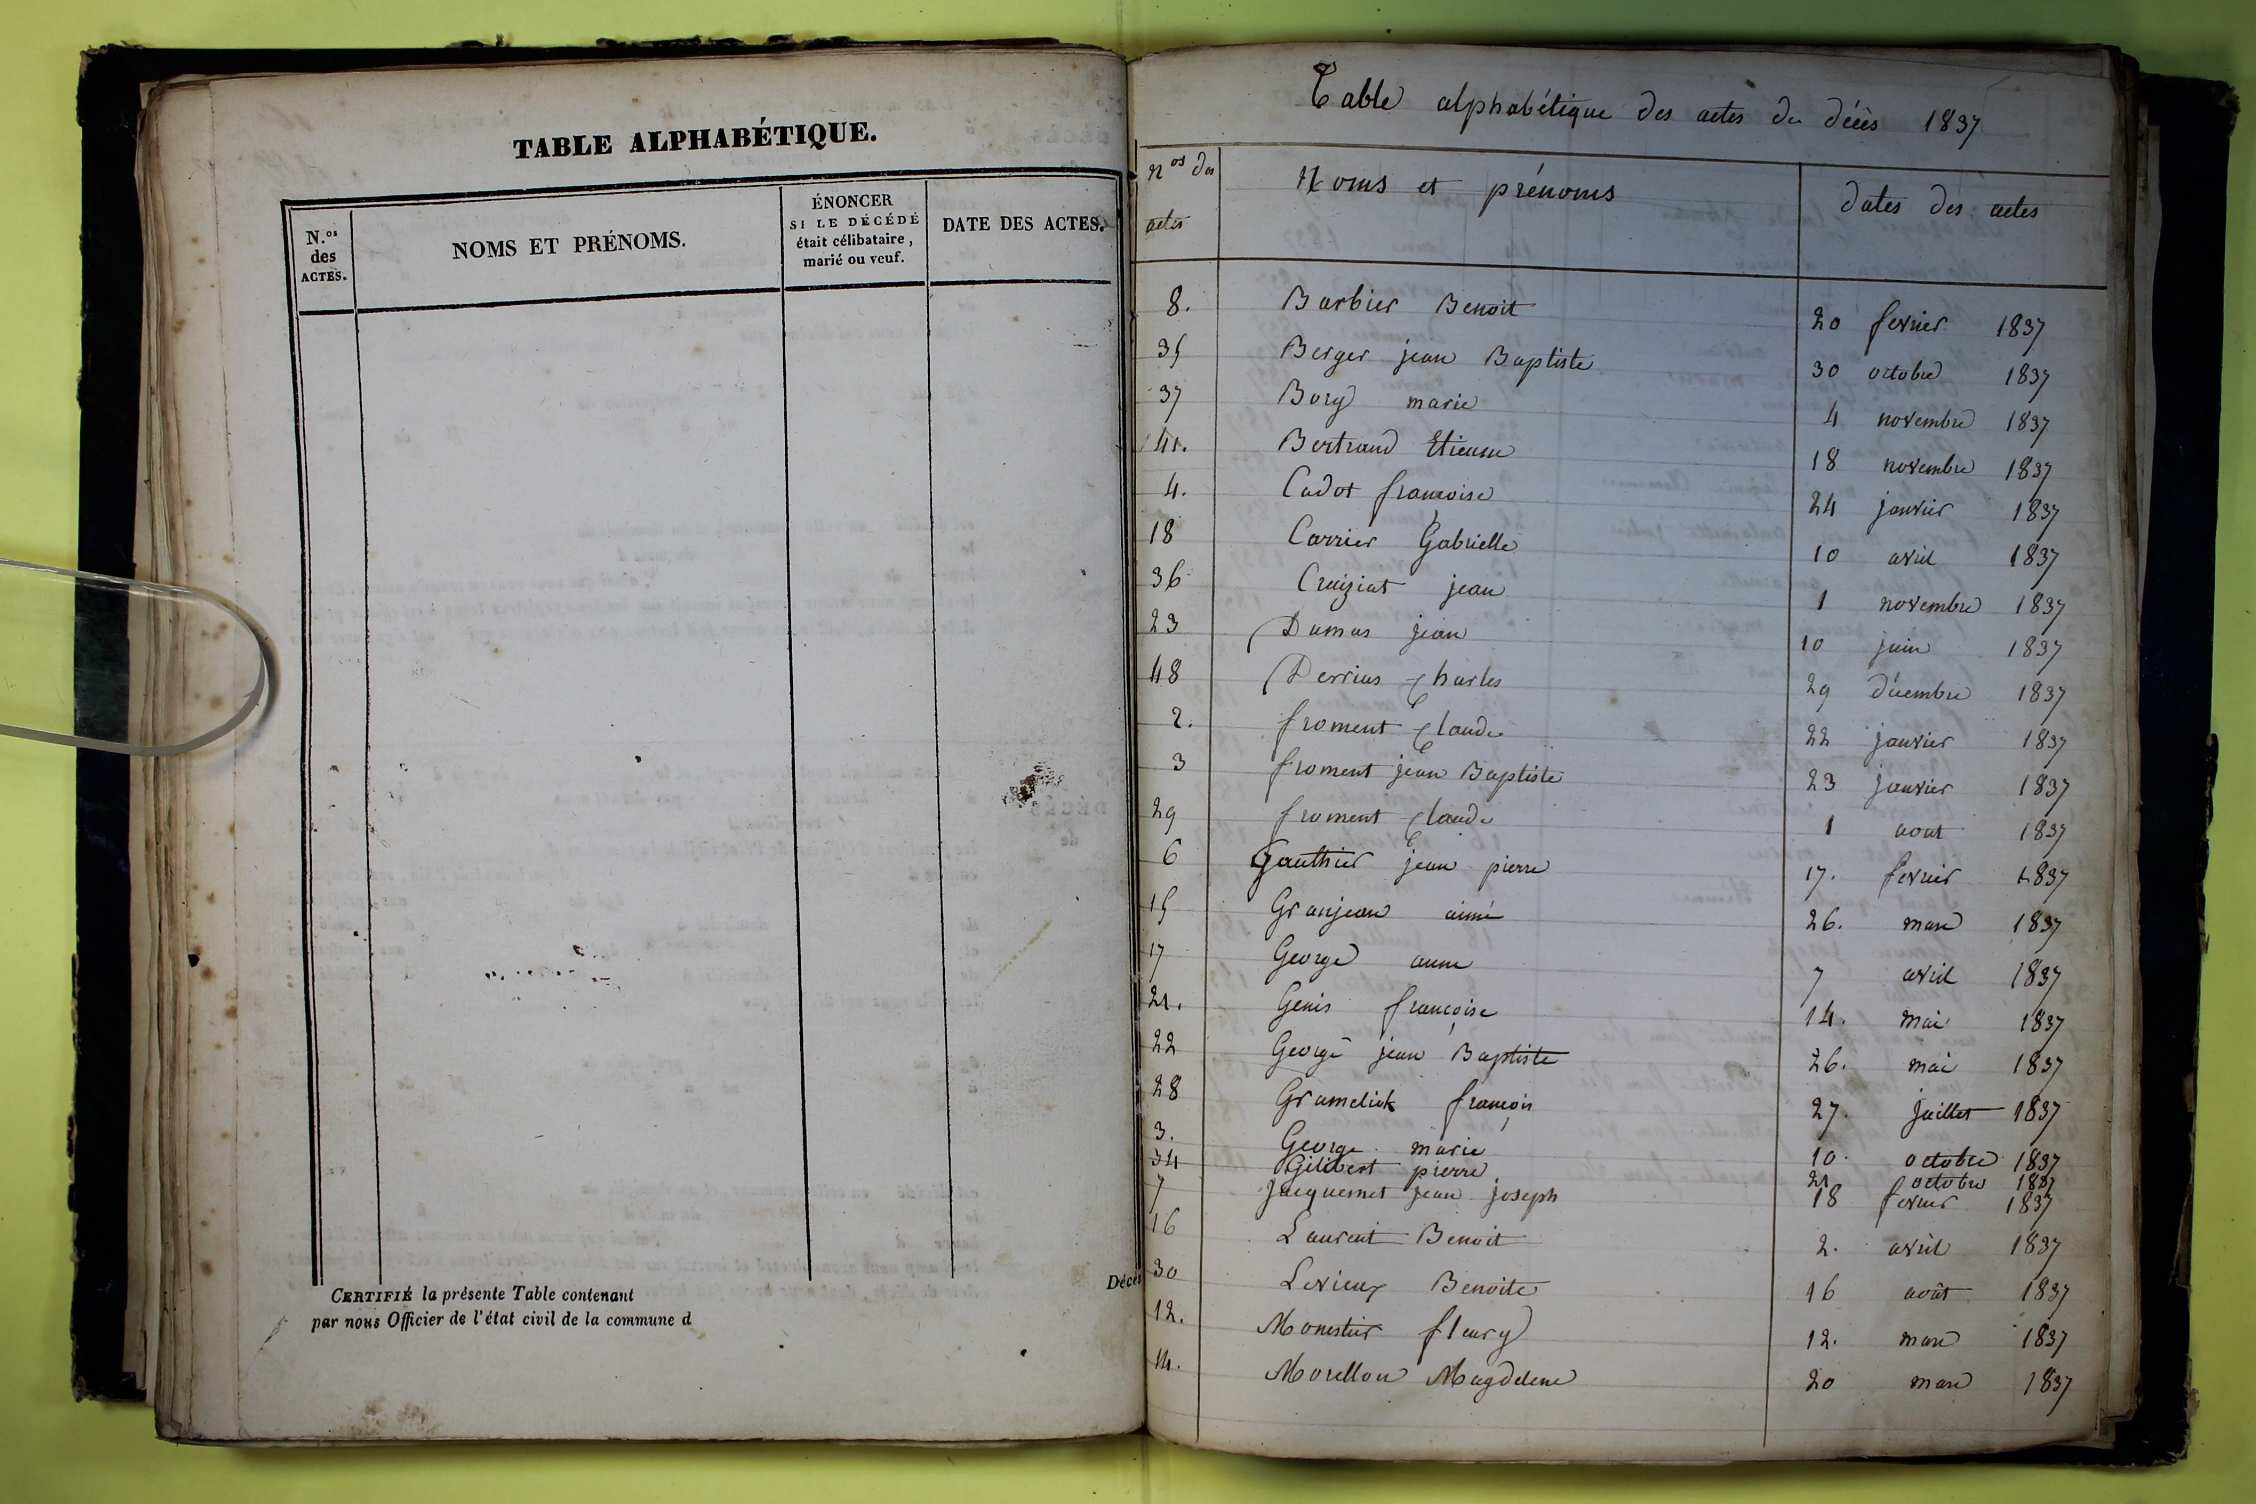 TABLE ALPHABÉTIQUE.
N.os des ACTES.
NOMS ET PRÉNOMS.
ÉNONCER SI LE DÉCÉDÉ était célibataire, marié ou veuf.
DATE DES ACTES.
CERTIFIÉ la présente Table contenant
par nous Officier de l'état civil de la commune d
Décès
Table alphabétique des actes de décès 1837
Nos des actes
Noms et prénoms
dates des actes
8. Barbier Benoit 20 fevrier 1837
35 Berger jean Baptiste 30 octobre 1837
37 Bory marie 4 novembre 1837
41. Bertrand Etienne 18 novembre 1837
4. Cadot françoise 24 janvier 1837
18 Carrier Gabrielle 10 avril 1837
36 Craiziat jean 1 novembre 1837
23 Dumas jean 10 juin 1837
48 Derrias Charles 29 décembre 1837
2. froment Claude 22 janvier 1837
3 froment jean Baptiste 23 janvier 1837
29 froment Claude 1 aout 1837
6 Gauthier jean pierre 17. fevrier 1837
15 Granjean aimé 26. mars 1837
17 George anne 7 avril 1837
21. Genis françoise 14. mai 1837
22 George jean Baptiste 26. mai 1837
28 Gramelick françois 27. juillet 1837
3. George marie 10. octobre 1837
34 Gilibert pierre 21 octobre 1837
7 Jacquemet jean joseph 18 fevrier 1837
16 Laurent Benoit 2. avril 1837
30 Levieux Benoite 16 août 1837
12. Monestier fleury 12. mars 1837
14. Morellon Magdelene 20 mars 1837